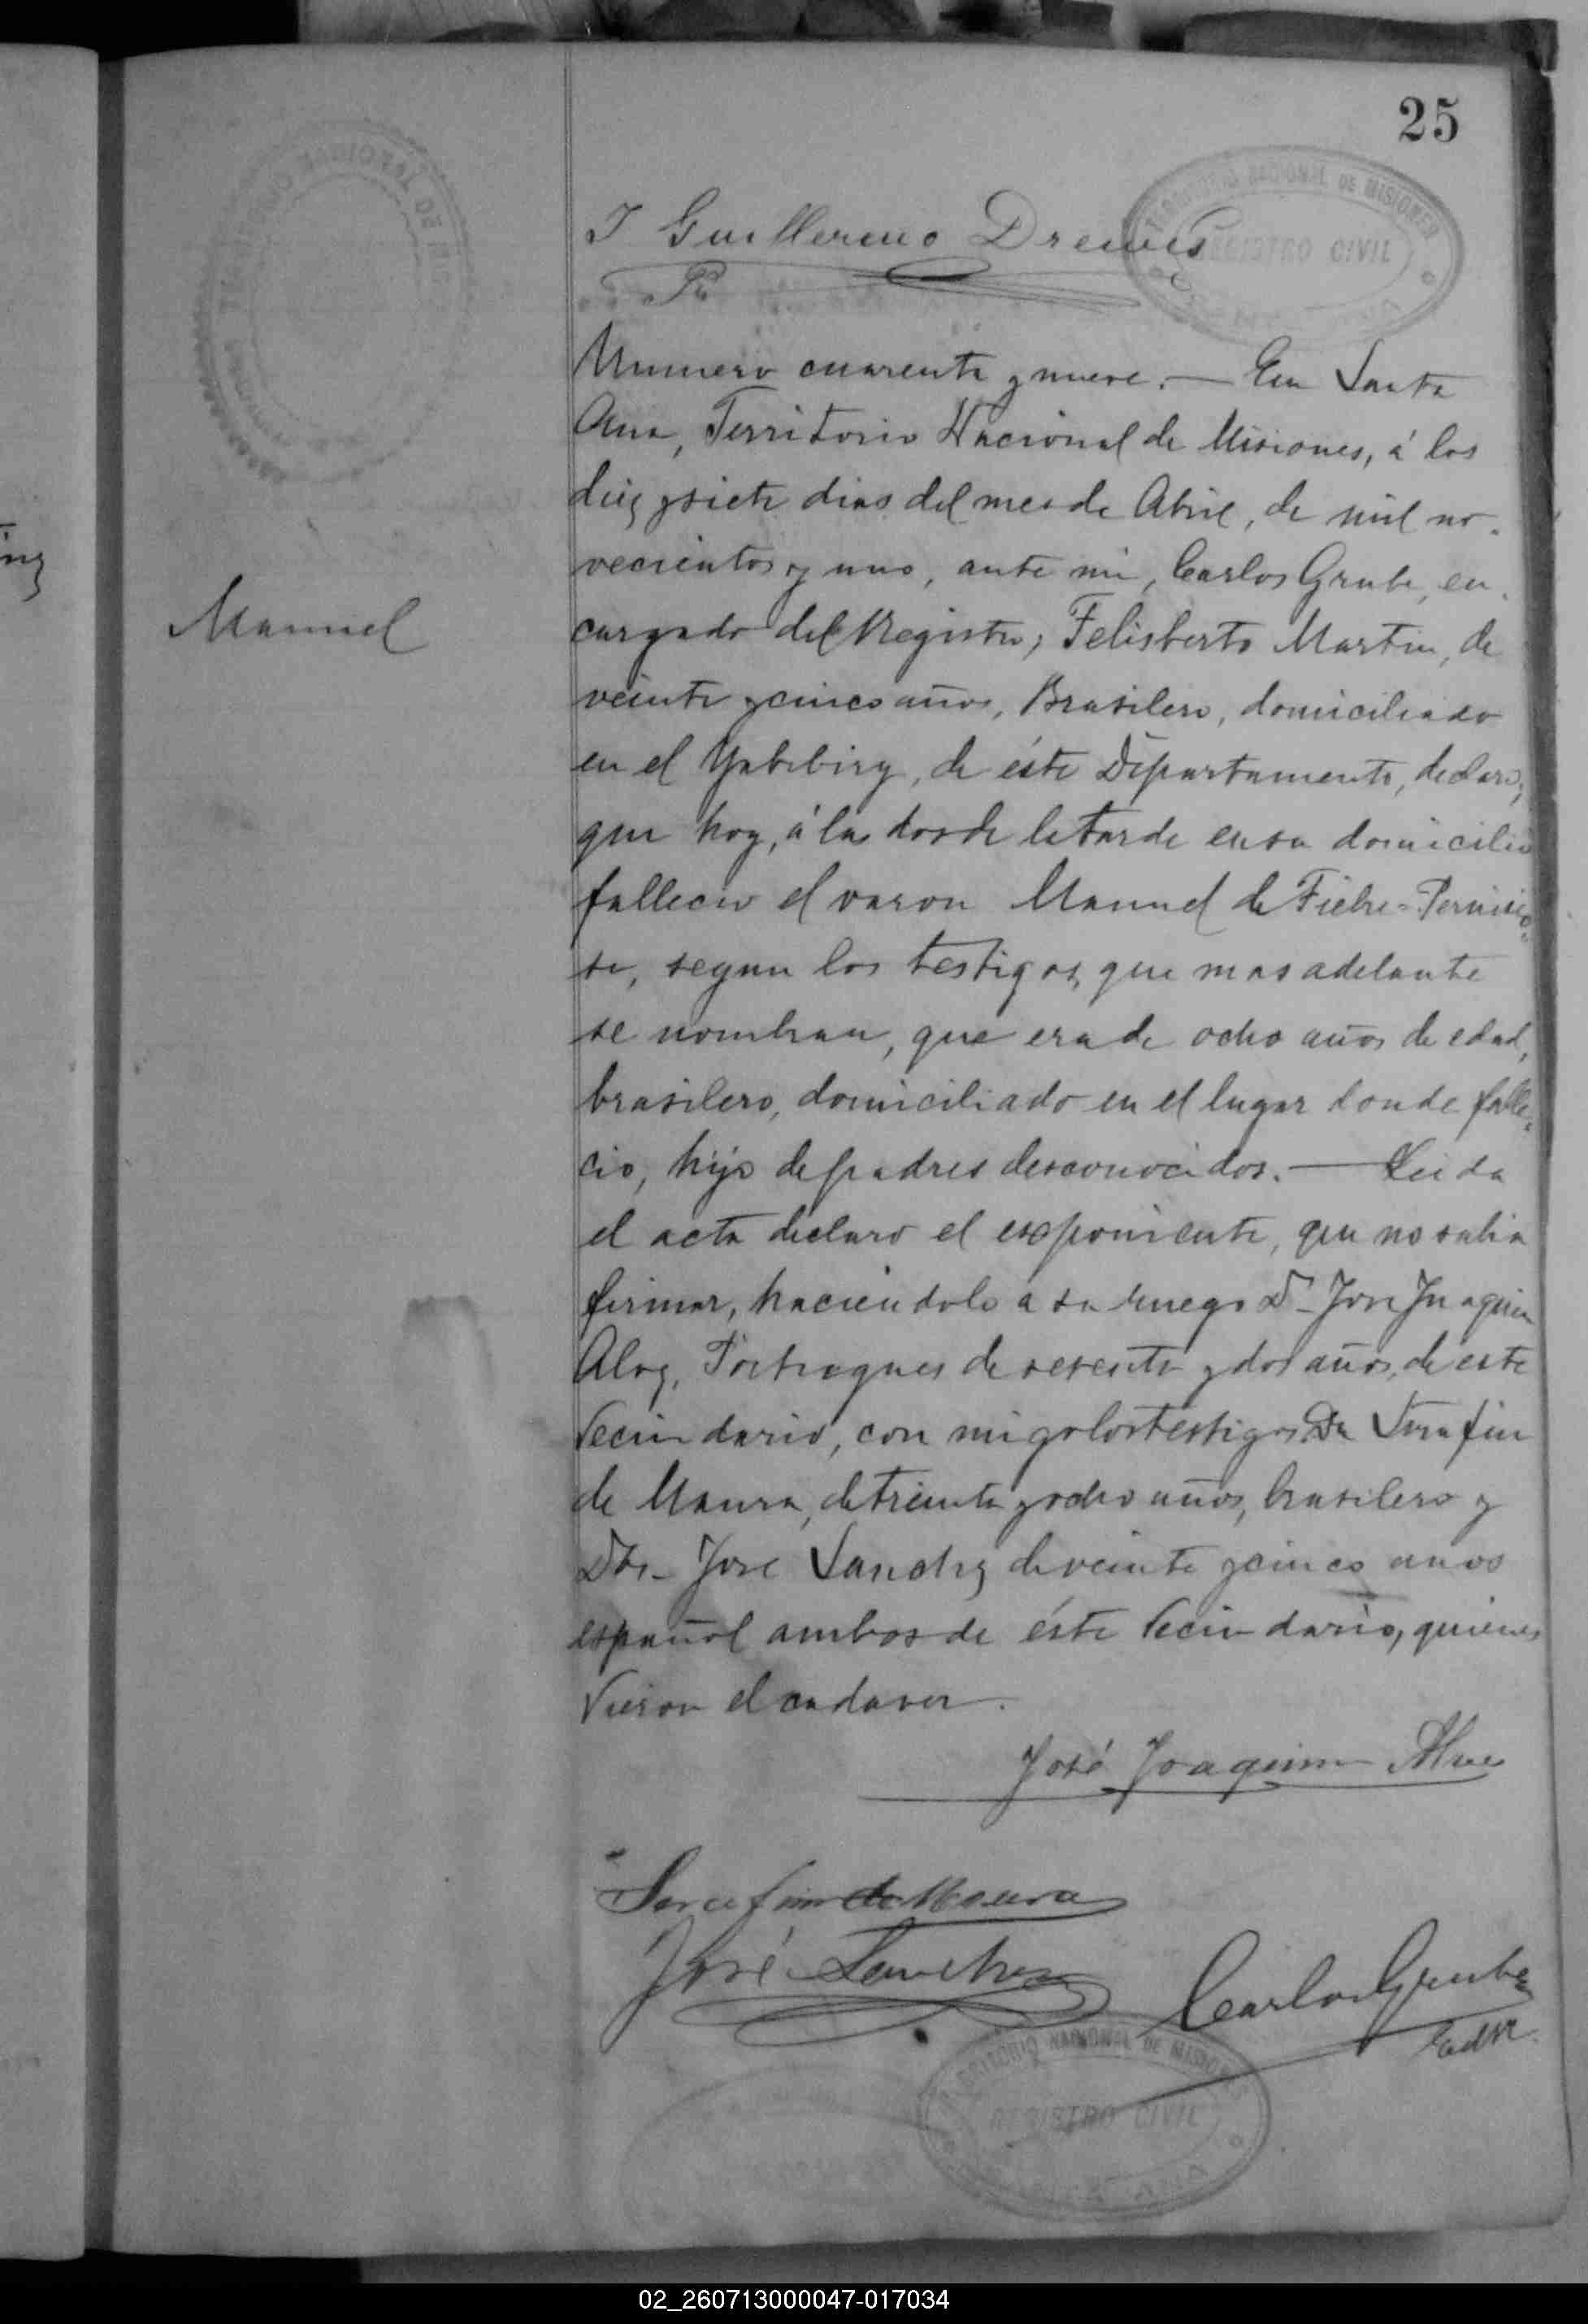 25
TERRITORIO NACIONAL DE MISIONES
REGISTRO CIVIL
J Guillermo Drewes
Numero cuarenta y nueve. — En Santa
Ana, Territorio Nacional de Misiones, á los
diez y siete dias del mes de Abril, de mil no-
vecientos y uno, ante mi, Carlos Grube, en-
cargado del Registro, Felisberto Martin, de
Manuel
veinte y cinco años, Brasilero, domiciliado
en el Yabebiry, de éste Departamento, declaro,
que hoy, á las dos de la tarde en su domicilio
fallecio el varon Manuel de Fiebre-Pernicio-
sa, segun los testigos, que mas adelante
se nombran, que era de ocho años de edad,
brasilero, domiciliado en el lugar donde falle-
cio, hijo de padres desconocidos. — Leida
el acta declaro el exponiente, que no sabia
firmar, haciendolo á su ruego Dn José Juaquin
Alvz, Portugues de sesenta y dos años, de este
Vecindario, con migo los testigos Dn Serafin
de Maura, de treinta y ocho años, brasilero y
Dn José Sanchz de veinte y cinco anos
español ambos de éste Vecindario, quienes
Vieron el cadaver.
José Joaquim Alves
Serafim de Moura
José Sanchez
Carlos Grube
TERRITORIO NACIONAL DE MISIONES
REGISTRO CIVIL
SANTA ANA
02_260713000047-017034